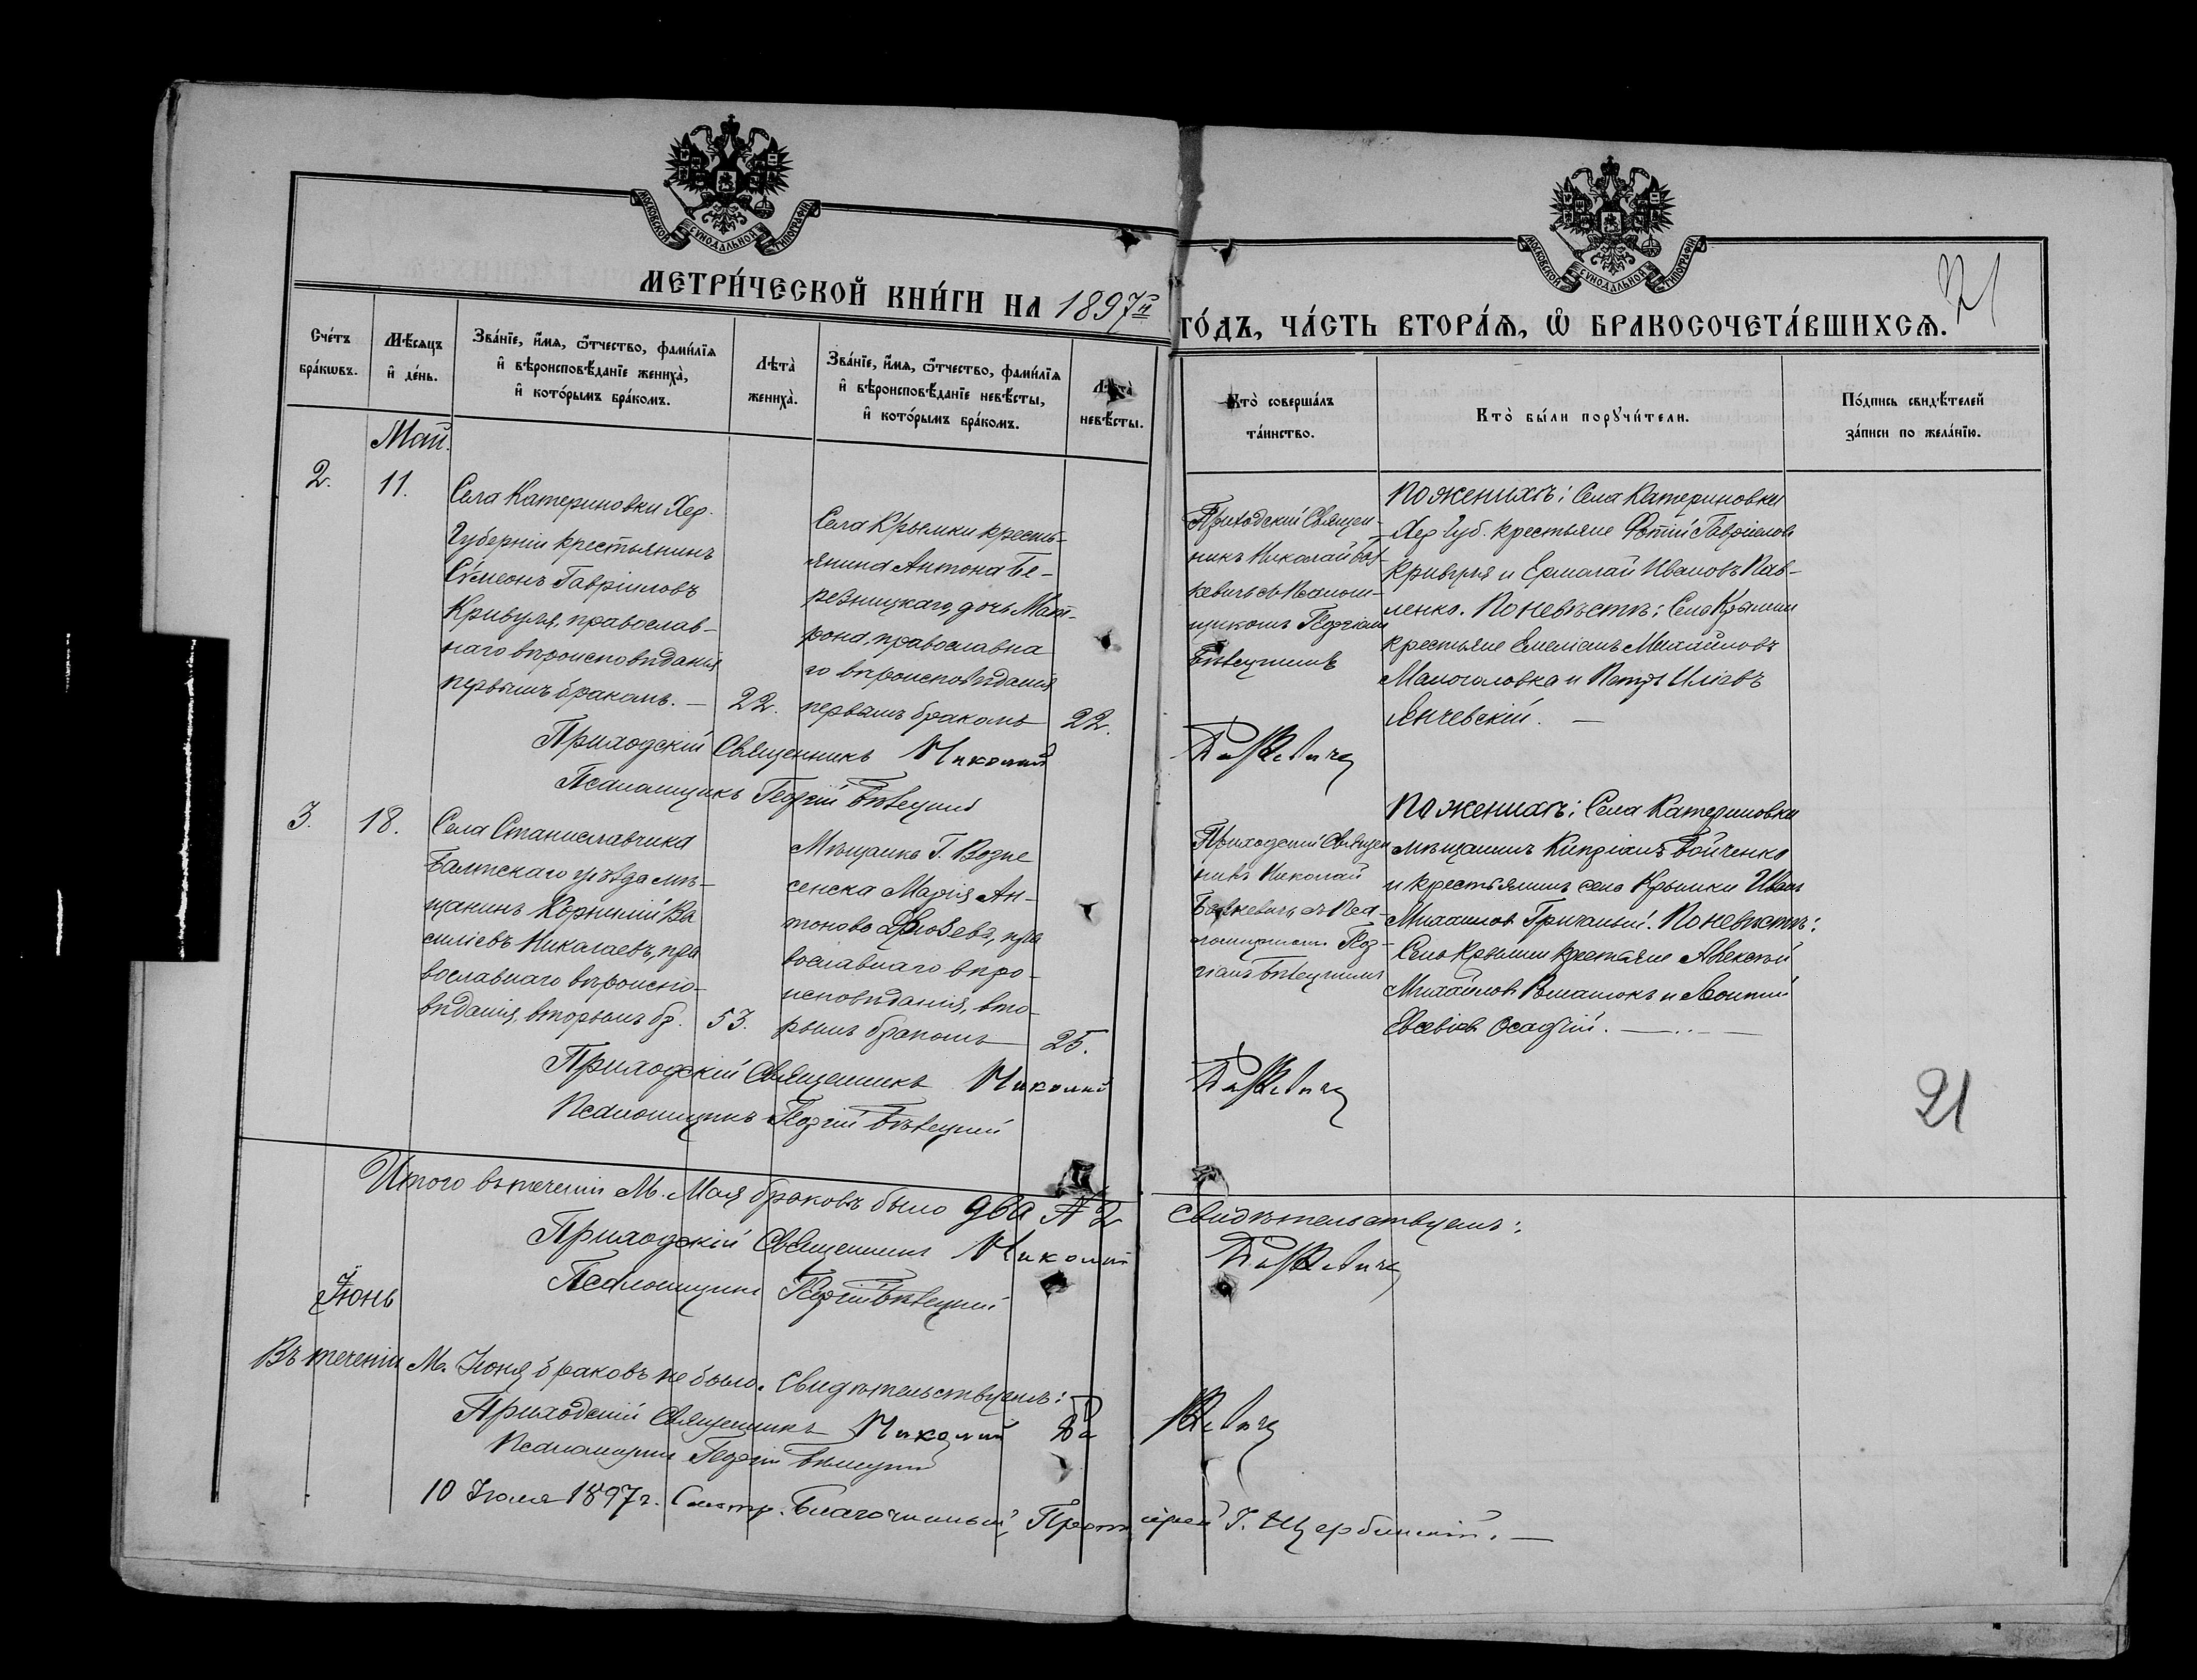 МОСКОВСКОЙ СУНОДАЛЬНОЙ ТИПОГРАФІИ
МОСКОВСКОЙ СУНОДАЛЬНОЙ ТИПОГРАФІИ
21
МЕТРИ́ЧЕСКОЙ КНИ́ГИ НА 1897й
ГО́ДЪ, ЧА́СТЬ ВТОРА́Ѧ, Ѽ БРАКОСОЧЕТА́ВШИХСѦ.
Сче́тъ
бра́кѡвъ.
Мѣ́сяцъ
и҆ де́нь.
Зва́нїе, и҆́мѧ, ѻ҆́тчество, фами́лїѧ
и҆ вѣроисповѣ́данїе жениха̀,
и҆ кото́рымъ бра́комъ.
Лѣта̀
жениха̀.
Зва́нїе, и҆́мѧ, ѻ҆́тчество, фами́лїѧ
и҆ вѣроисповѣ́данїе невѣ́сты,
и҆ кото́рымъ бра́комъ.
Лѣта̀
невѣ́сты.
Кто̀ соверша́лъ
та́инство.
Кто̀ бы́ли порꙋчи́тели.
По́дпись свидѣ́телей
за́писи по жела́нїю.
Май.
2.
11.
Села Катериновки Хер.
Губерніи крестьянинъ
Сѵмеонъ Гавріиловъ
Кривуля, православ-
наго вѣроисповѣданія
первымъ бракомъ. —
22.
Села Крымки кресть-
янина Антона Бе-
резницкаго, дочь Мат-
рона, православна
го вѣроисповѣданія
первымъ бракомъ
22.
Приходскій Священ-
никъ Николай
кевичъ съ Псалом-
щикомъ Георгіемъ
По женихѣ: Села Катериновки
Хер. Губ. крестьяне Фотій Гавріиловъ
Кривуля и Ермолай Ивановъ Пав-
ленко. По невѣстѣ: Села Крымки
крестьяне Емеліанъ Михайловъ
Малоголовка и Петръ Иліевъ
Янчевскій. —
Приходскій Священникъ Николай
Псаломщикъ Георгій
3.
18.
Села Станиславчика
Балтскаго уѣзда мѣ-
щанинъ Корнилій Ва
силіевъ Николаевъ, пра
вославнаго вѣроиспо-
вѣданія, вторымъ бр.
53.
Мѣщанка Г. Возне
сенска Марія Ан-
тонова
вославнаго вѣро-
исповѣданія, вто-
рымъ бракомъ
25.
Приходскій Священ
никъ Николай
съ Пса-
ломщикомъ Геор-
гіемъ
По женихѣ: Села Катериновки
мѣщанинъ Кипріанъ Бойченко
и крестьянинъ села Крымки Иванъ
Михаиловъ Гричаный. По невѣстѣ:
Села Крымки крестьяне Алексѣй
Михаиловъ и Леонтій
Евсевіевъ Осадчій.
Приходскій Священникъ Николай
Псаломщикъ Георгій
21
Итого въ теченіи М. Мая браковъ было два № 2 Свидѣтельствуемъ:
Приходскій Священникъ Николай
Псаломщикъ Георгій
Іюнь
Въ теченіи М. Іюня браковъ не было. Свидѣтельствуемъ:
Приходскій Священникъ Николай
Псаломщикъ Георгій
10 Іюля 1897 г. Смотр. Благочинный, Протоіерей Г. Щербинскій. —